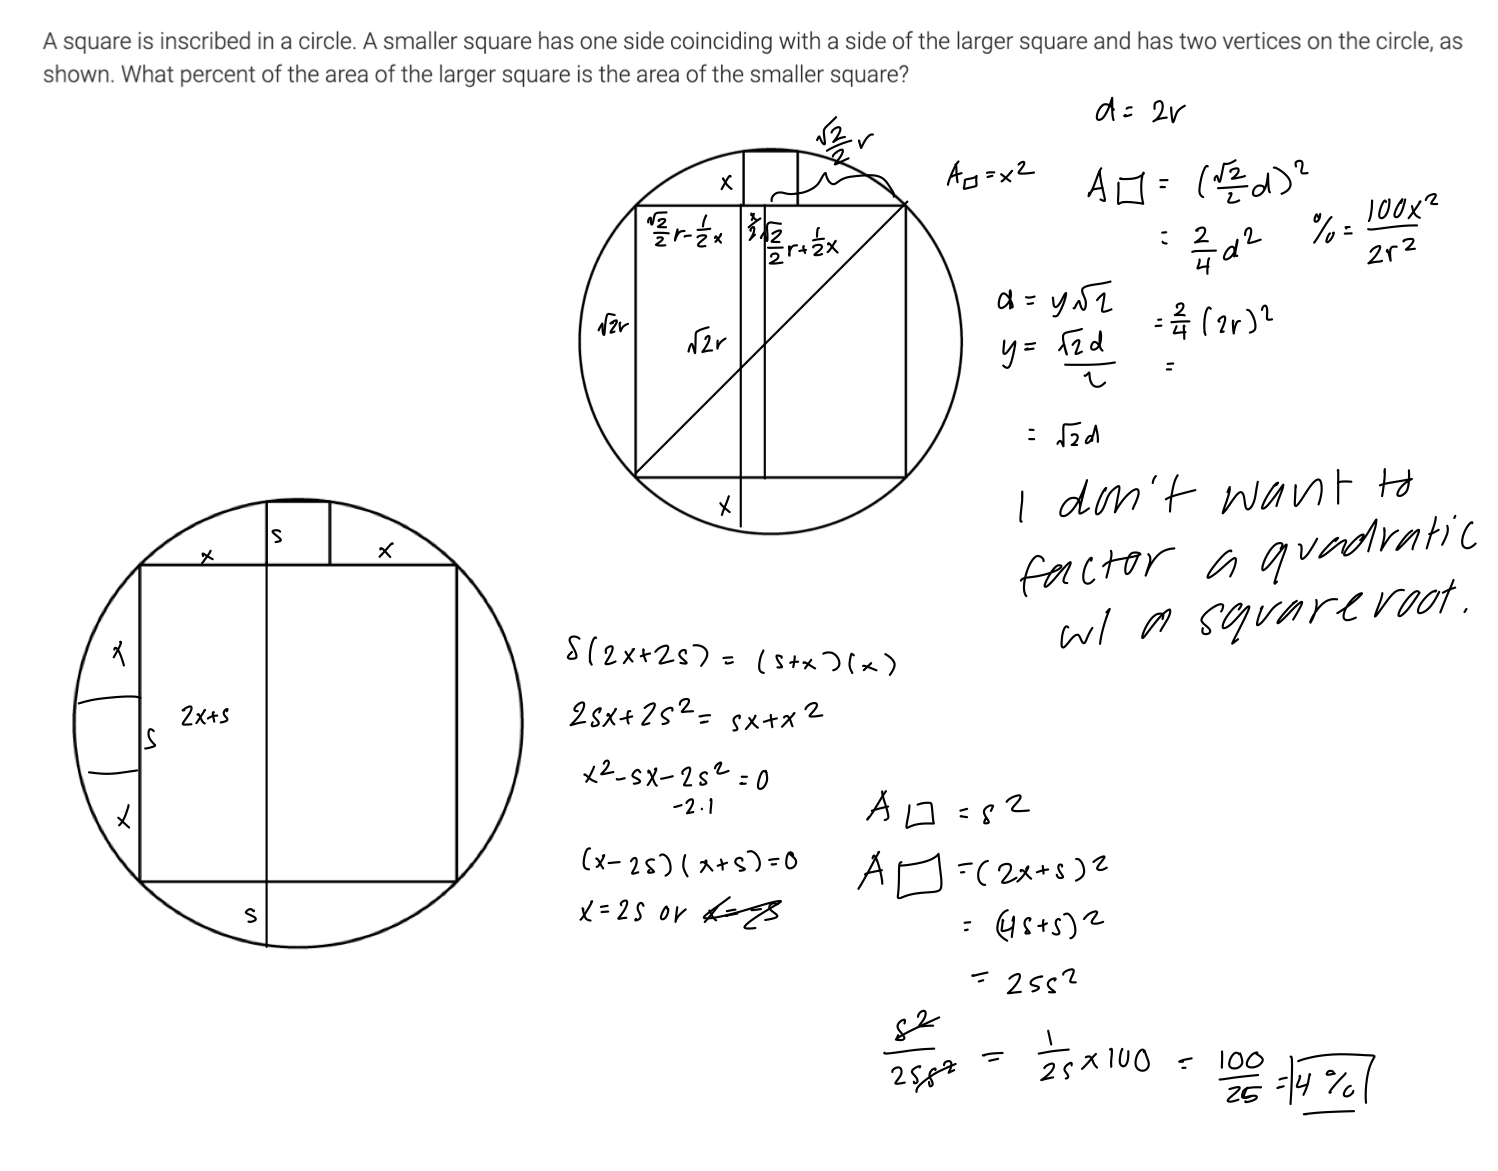 A square is inscribed in a circle. A smaller square has one side coinciding with a side of the larger square and has two vertices on the circle, as
shown. What percent of the area of the larger square is the area of the smaller square?
d = 2r
√2/2 r
A□ = x²
A□ = (√2/2 d)²
= 2/4 d²
% = 100x²/2r²
= 2/4 (2r)²
=
x
√2/2 r - 1/2 x
x/2
√2/2 r + 1/2 x
√2r
√2r
x
d = y√2
y = √2d/2
= √2d
I don't want to
factor a quadratic
w/ a square root.
s
x
x
x
2x+s
s
x
s
s(2x+2s) = (s+x)(x)
2sx+2s² = sx+x²
x²-sx-2s² = 0
-2·1
(x-2s)(x+s)=0
x=2s or x=-s
A□ = s²
A□ = (2x+s)²
= (4s+s)²
= 25s²
s²/25s² = 1/25 x 100 = 100/25 = 4%